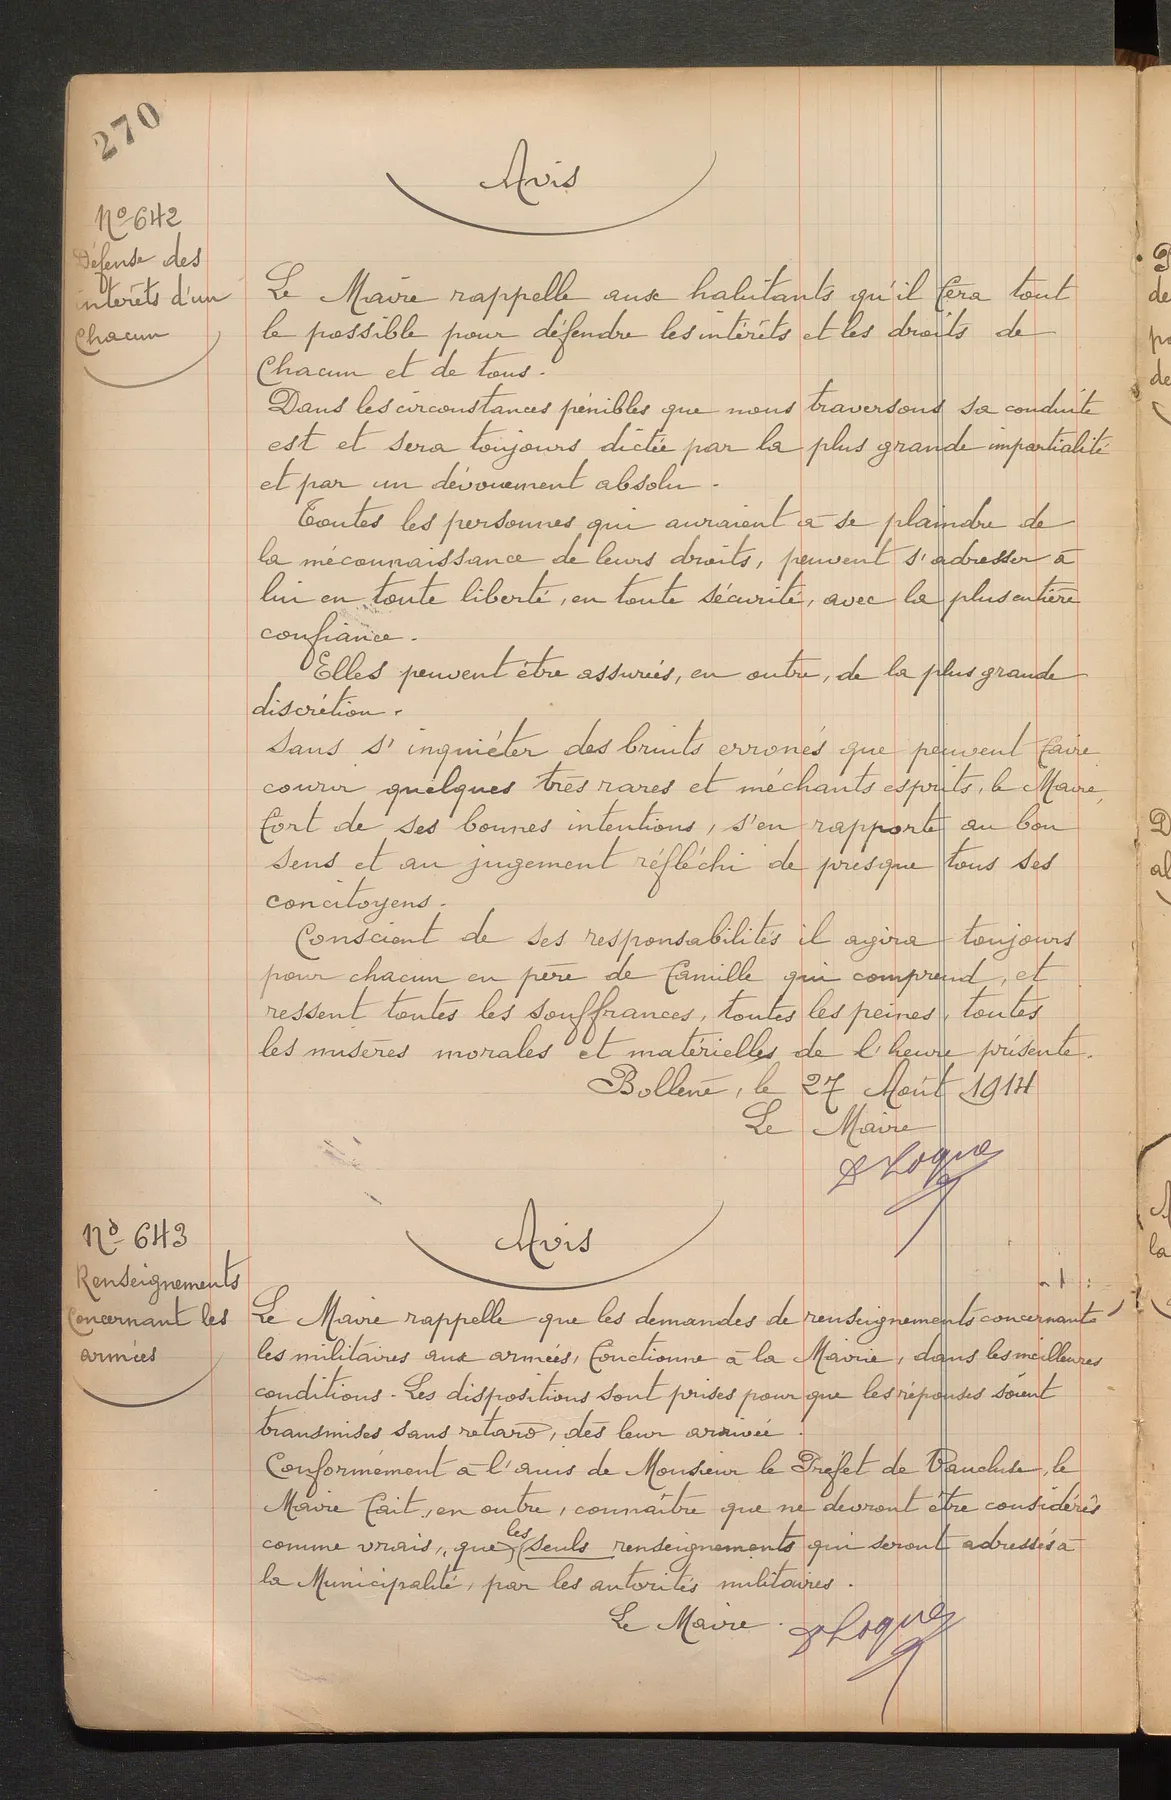 270
Avis
No 642
Défense des
intérêts d'un
Chacun
Le Maire rappelle aux habitants qu'il fera tout
le possible pour défendre les intérêts et les droits de
Chacun et de tous.
Dans les circonstances pénibles que nous traversons sa conduite
est et sera toujours dictée par la plus grande impartialité
et par un dévouement absolu.
Toutes les personnes qui auraient à se plaindre de
la méconnaissance de leurs droits, peuvent s'adresser à
lui en toute liberté, en toute sécurité, avec la plus entière
confiance.
Elles peuvent être assurées, en outre, de la plus grande
discrétion.
Sans s'inquiéter des bruits erronés que peuvent faire
courir quelques très rares et méchants esprits, le Maire,
fort de ses bonnes intentions, s'en rapporte au bon
sens et au jugement réfléchi de presque tous ses
concitoyens.
Conscient de ses responsabilités il agira toujours
pour chacun en père de famille qui comprend, et
ressent toutes les souffrances, toutes les peines, toutes
les misères morales et matérielles de l'heure présente.
Bollène, le 27 Août 1914
Le Maire
No 643
Renseignements
Concernant les
armées
Avis
Le Maire rappelle que les demandes de renseignements concernants
les militaires aux armées, fonctionne à la Mairie, dans les meilleures
conditions. Les dispositions sont prises pour que les réponses soient
transmises sans retard, dès leur arrivée.
Conformément à l'avis de Monsieur le Préfet de Vaucluse, le
Maire fait, en outre, connaître que ne devront être considérés
comme vrais, que les seuls renseignements qui seront adressés à
la Municipalité, par les autorités militaires.
Le Maire.